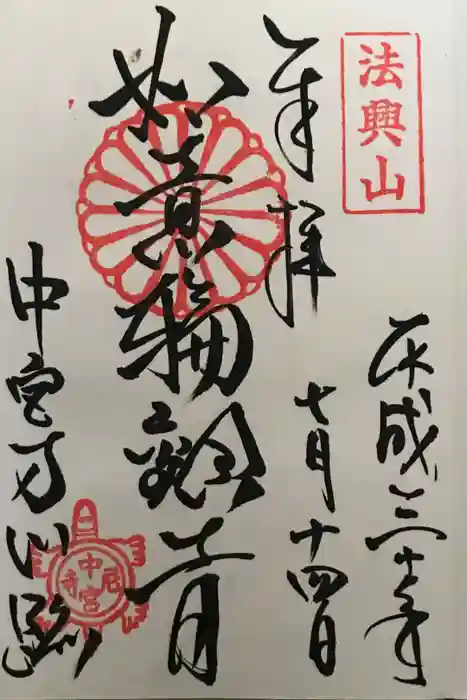 法興山
平成三十年
七月十四日
奉拝
如意輪観音
中宮寺門跡